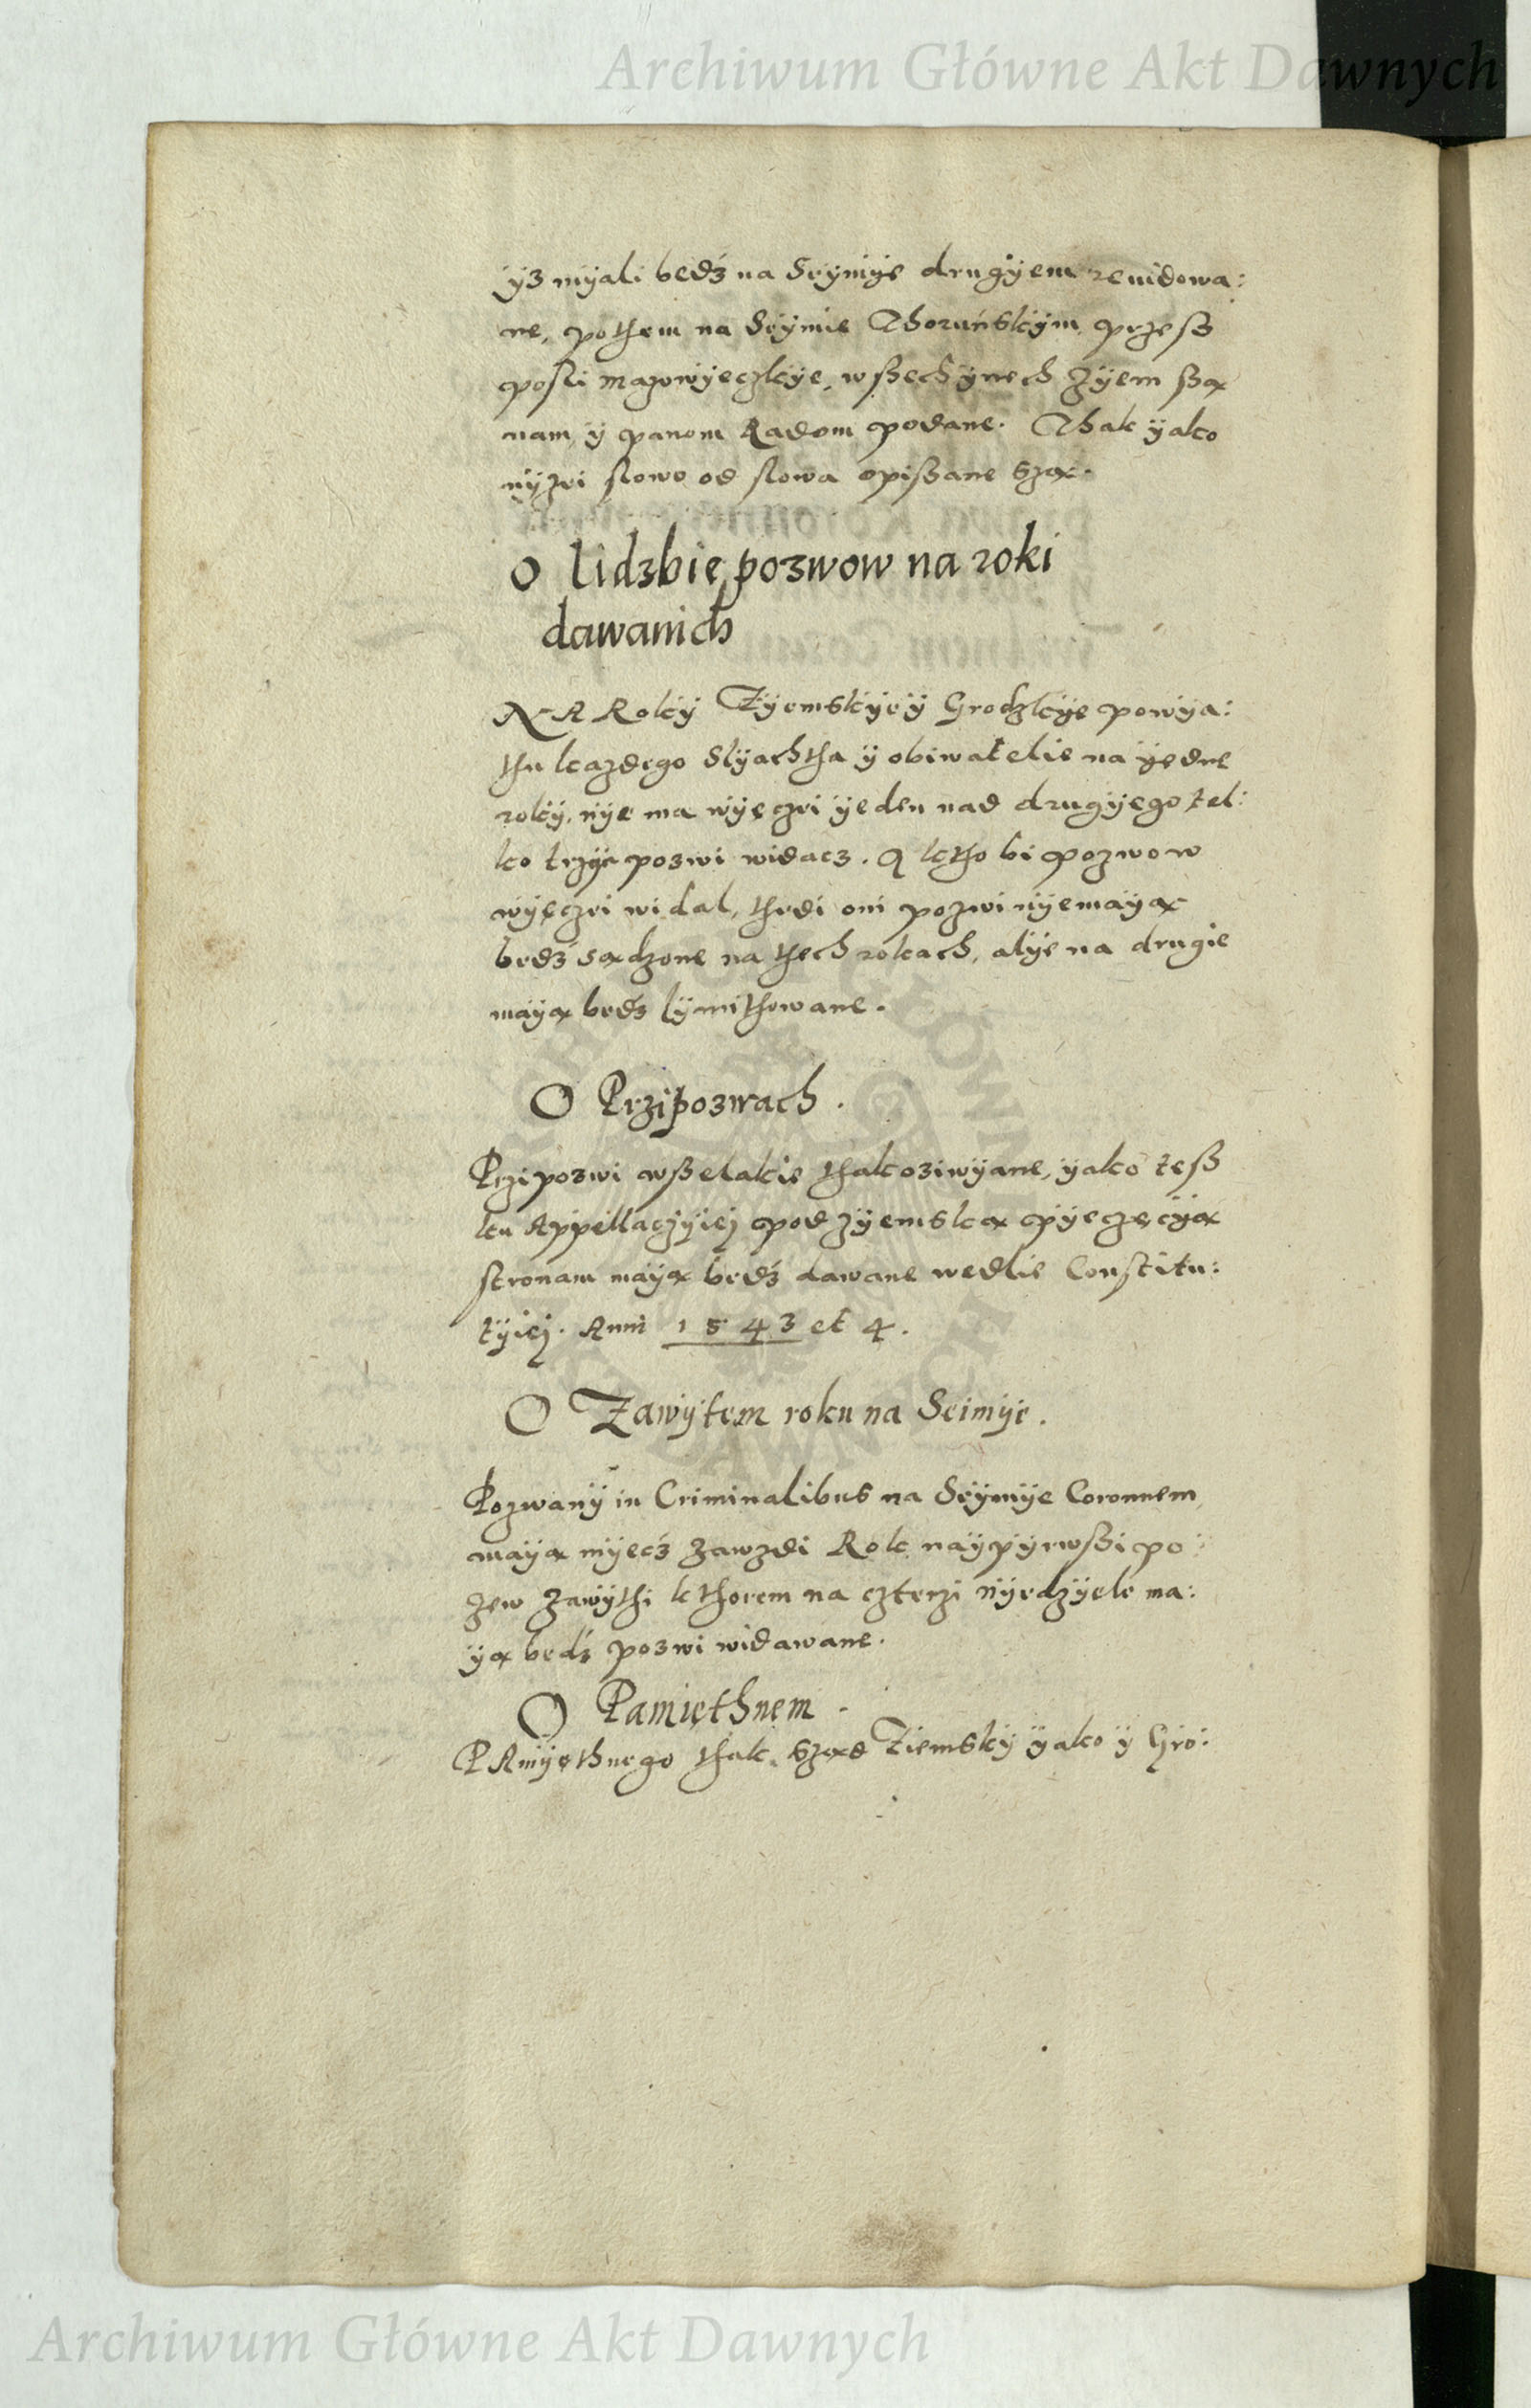 Archiwum Główne Akt Dawnych
ÿz mÿali bedź na Seÿmÿe drugÿem revidowa:
ne, pothem na Seÿmie Thoruńskÿm, przesz
posli mazowÿeczkÿe, wszech ÿnech Zÿem są
nam ÿ panom Radom podane. Thak ÿako
nÿzei slowo od slowa opiszane szą.
O lidzbie pozwow na roki
dawanich
NA Rokÿ Zÿemskÿe ÿ Grodzkÿe powÿa:
thu kazdego Slÿachtha ÿ obiwatelie na ÿedne
rokÿ, nÿe ma wÿęczei ÿeden nad drugÿego tel:
ko trzÿe pozwi widacz. A ktho bi pozwow
wÿęczei widal, thedi oni pozwi nÿe maÿą
bedź sądzone na thech rokach, alÿe na drugie
maÿą bedź lÿmithowane.
O Przipozwach.
Przipozwi wszelakie thak oziwÿane, ÿako tesz
ku Appellaczÿiej pod zÿemską pÿeczęcÿą
stronam maÿą bedź dawane wedlie Constitu:
tÿiej. Anni 1543 et 4.
O Zawÿtem roku na Seimÿe.
Pozwanÿ in Criminalibus na Seÿmÿe Coronnem,
maÿą mÿecź zawzdi Rok naÿpÿrwszi po:
zew zawÿthi kthorem na czterzi nÿedzÿele ma:
ÿą bedź pozwi widawane.
O Pamięthnem.
PAmÿęthnego thak Sząd Ziemskÿ ÿako ÿ Gro:
Archiwum Główne Akt Dawnych